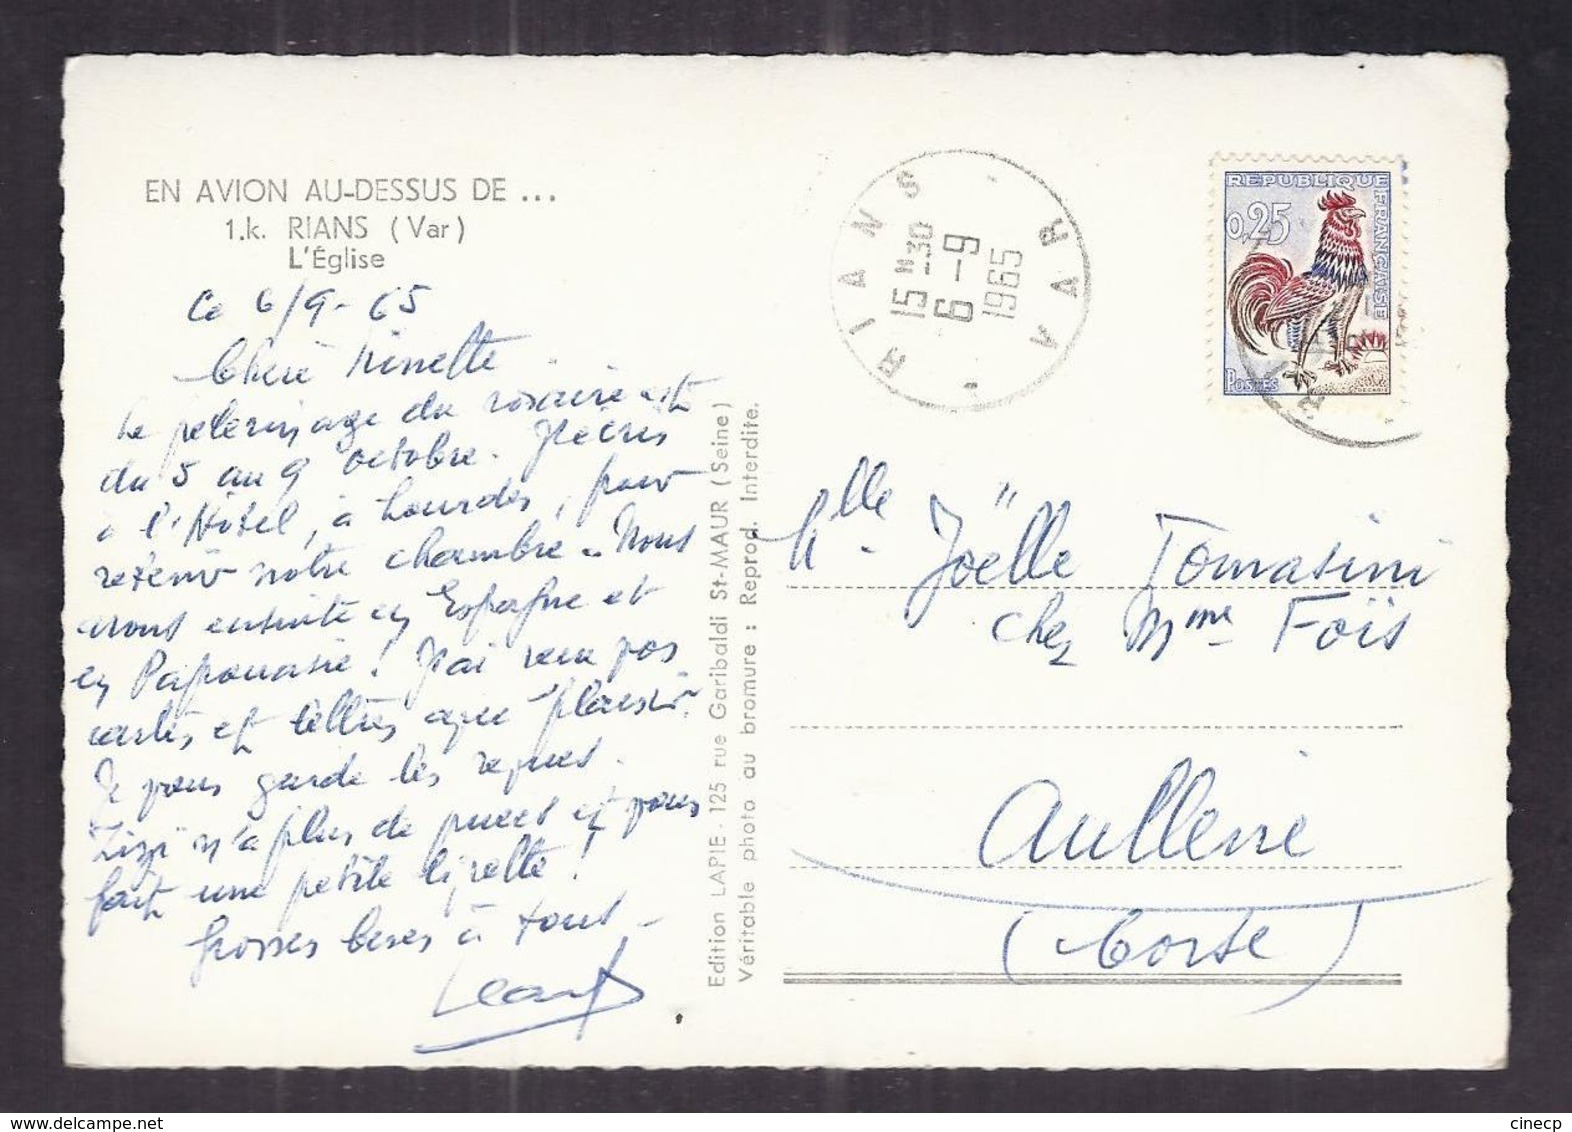 EN AVION AU-DESSUS DE ...
1.k. RIANS (Var)
L'Église
Ce 6/9-65
Chère
Le pelerinage du rosaire est
du 5 au 9 octobre. J'écris
à l'Hôtel, à Lourdes, pour
retenir notre chambre. Nous
irons ensuite en Espagne et
en Papouasie! J'ai reçu vos
cartes et lettres avec plaisir.
Je vous garde les
Zizi n'a plus de puces et vous
fait une petite
Grosses bises à tous -
Edition LAPIE - 125 rue Garibaldi St-MAUR (Seine)
Véritable photo au bromure : Reprod. Interdite.
RIANS VAR
15H30
6-9
1965
REPUBLIQUE FRANÇAISE
0,25
POSTES
Mlle. Joëlle Tomasini
chez Mme Foïs
Aullene
(Corse)
cinecp